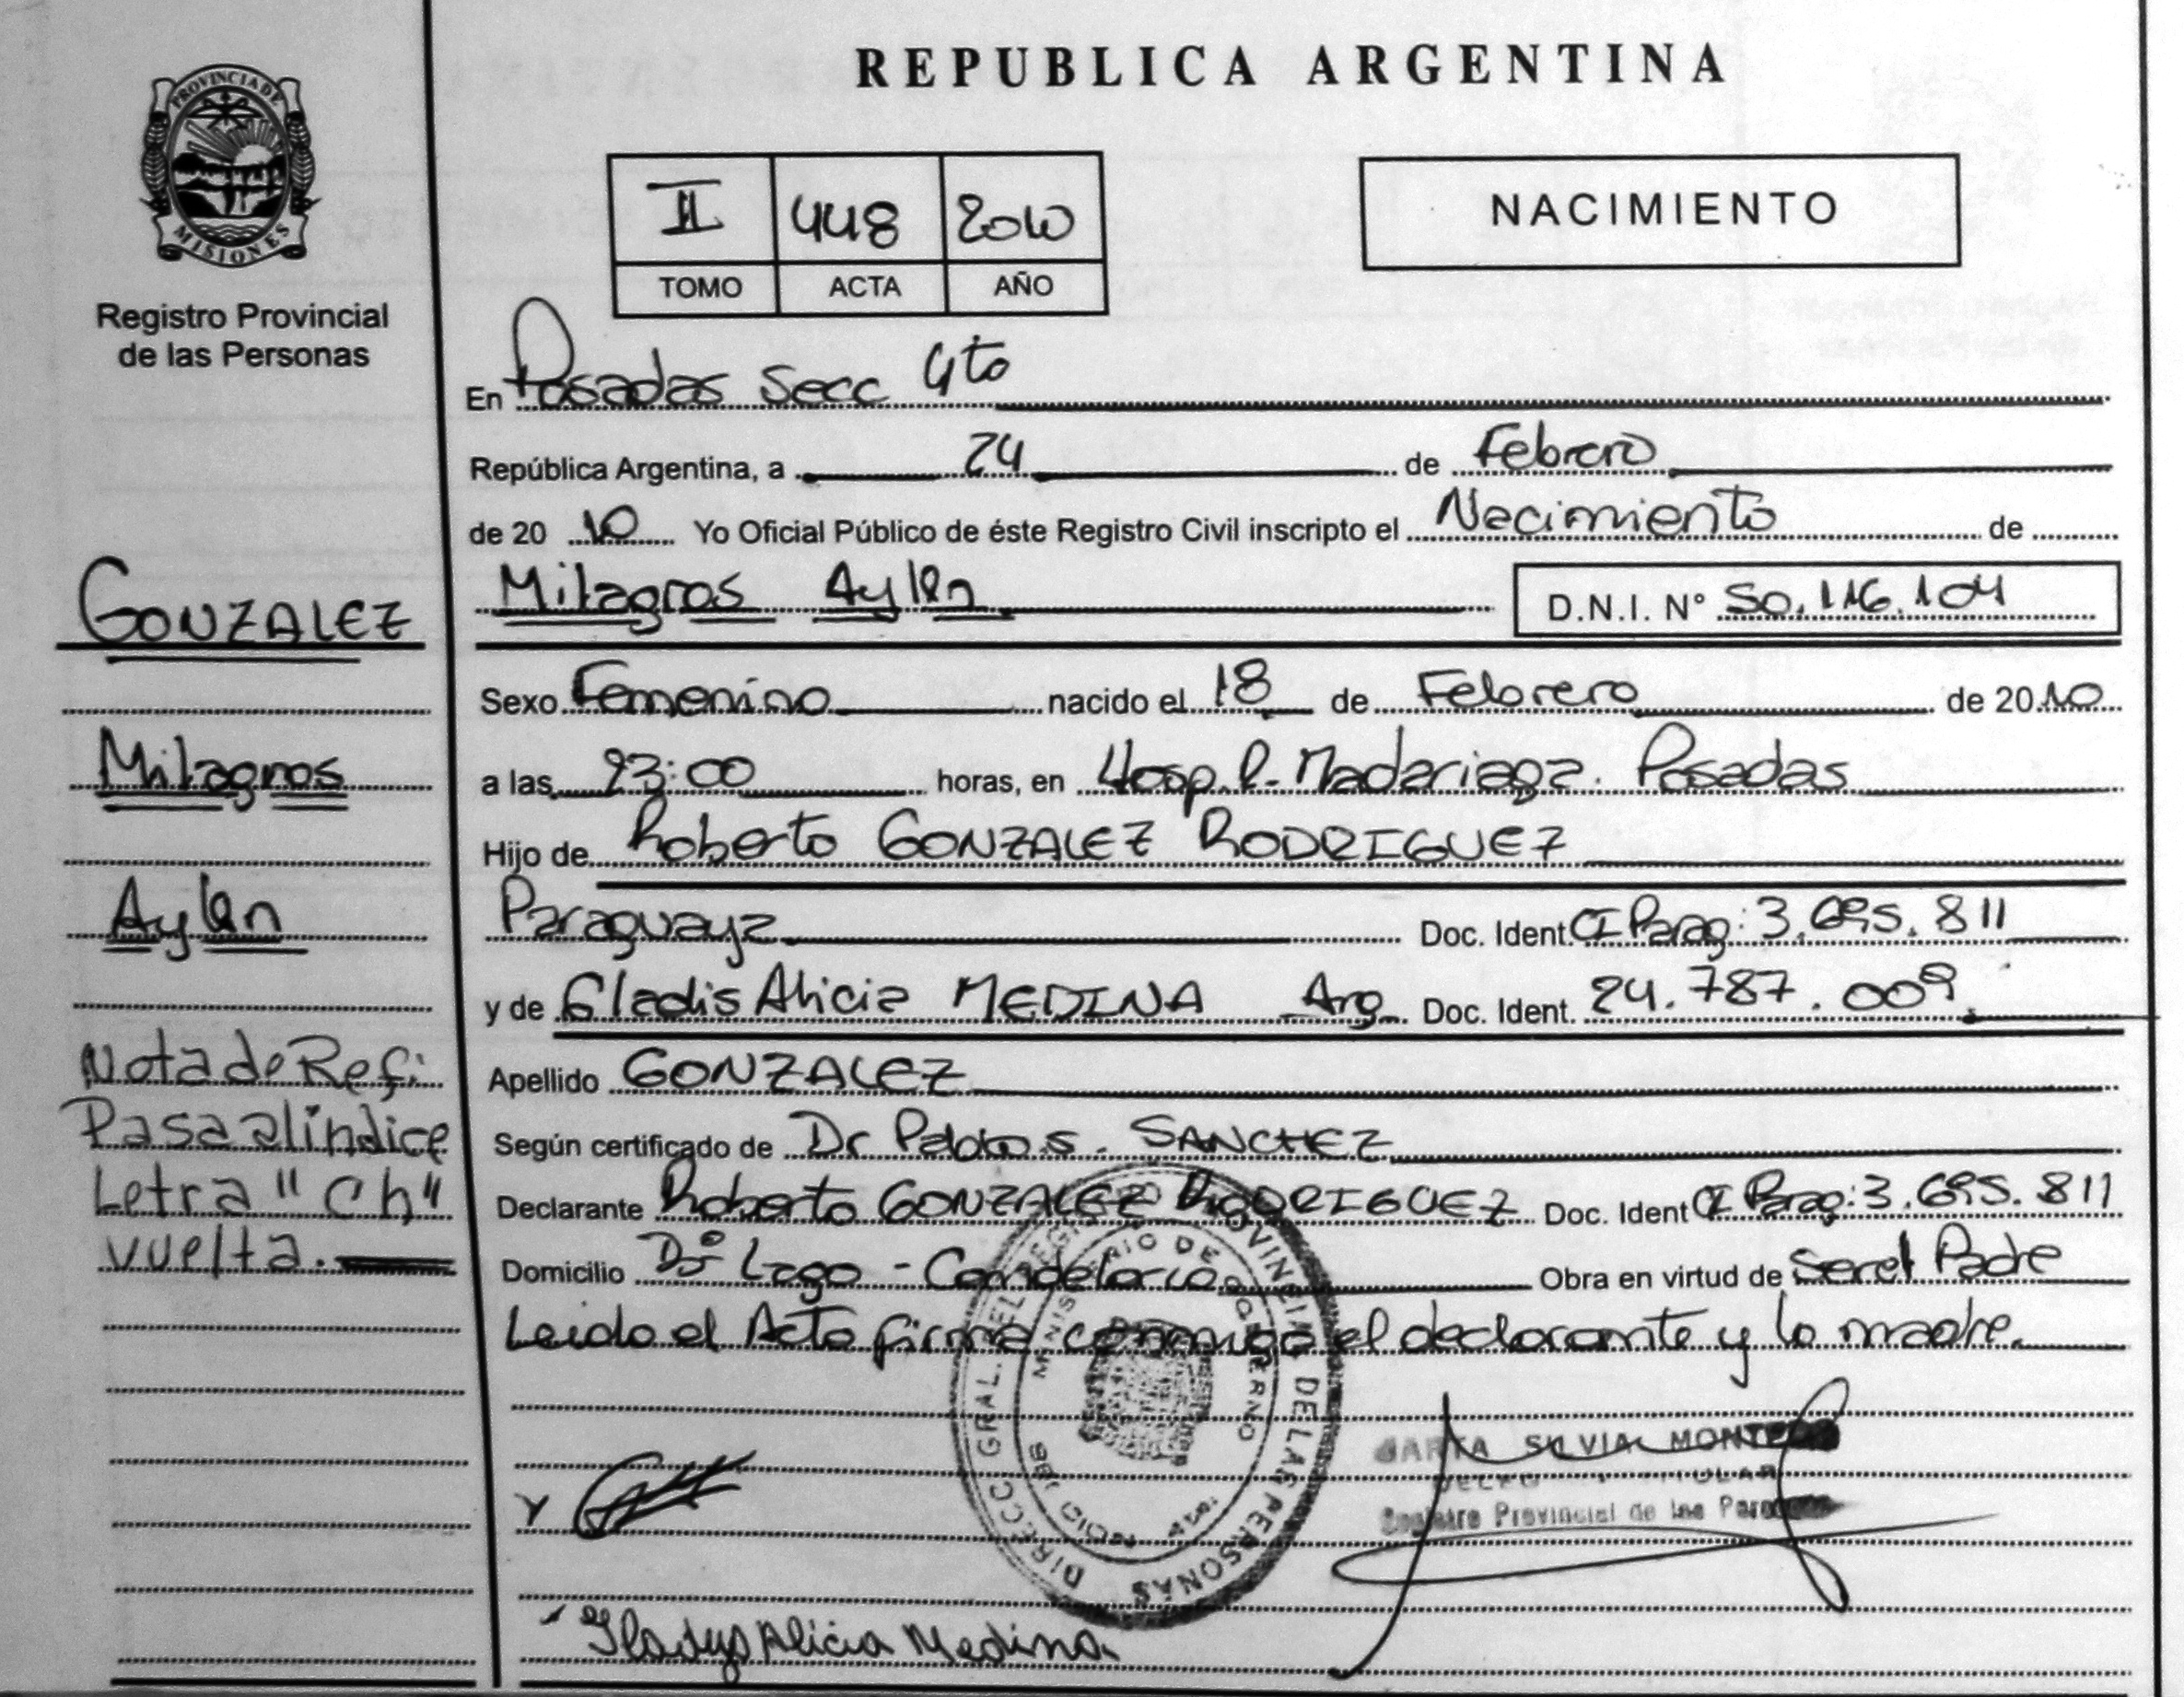 PROVINCIA DE
MISIONES
Registro Provincial
de las Personas
GONZALEZ
Milagros
Aylén
Nota de Ref:
Pasa al índice
Letra "Ch"
vuelta.
REPUBLICA ARGENTINA
II 448 2010
TOMO ACTA AÑO
NACIMIENTO
En Posadas Secc 4to
República Argentina, a 24 de Febrero
de 20 10 Yo Oficial Público de éste Registro Civil inscripto el Nacimiento de
Milagros Aylén D.N.I. N° 50.116.104
Sexo Femenino nacido el 18 de Febrero de 20 10
a las 23:00 horas, en Hosp. R. Madariaga. Posadas
Hijo de Roberto GONZALEZ RODRIGUEZ
Paraguaya Doc. Ident. CI Parag: 3.695.811
y de Gladis Alicia MEDINA Arg. Doc. Ident. 24.787.009
Apellido GONZALEZ
Según certificado de Dr Pablo S. SANCHEZ
Declarante Roberto GONZALEZ RODRIGUEZ Doc. Ident CI Parag: 3.695.811
Domicilio Bº Lago - Candelaria Obra en virtud de Ser el Padre
Leido el Acta firma conmigo el declarante y la madre.
DIRECC. GRAL. DEL REGISTRO PROVINCIAL DE LAS PERSONAS
MINISTERIO DE GOBIERNO
MARTA SILVIA
TITULAR
Registro Provincial de las Personas
Gladys Alicia Medina